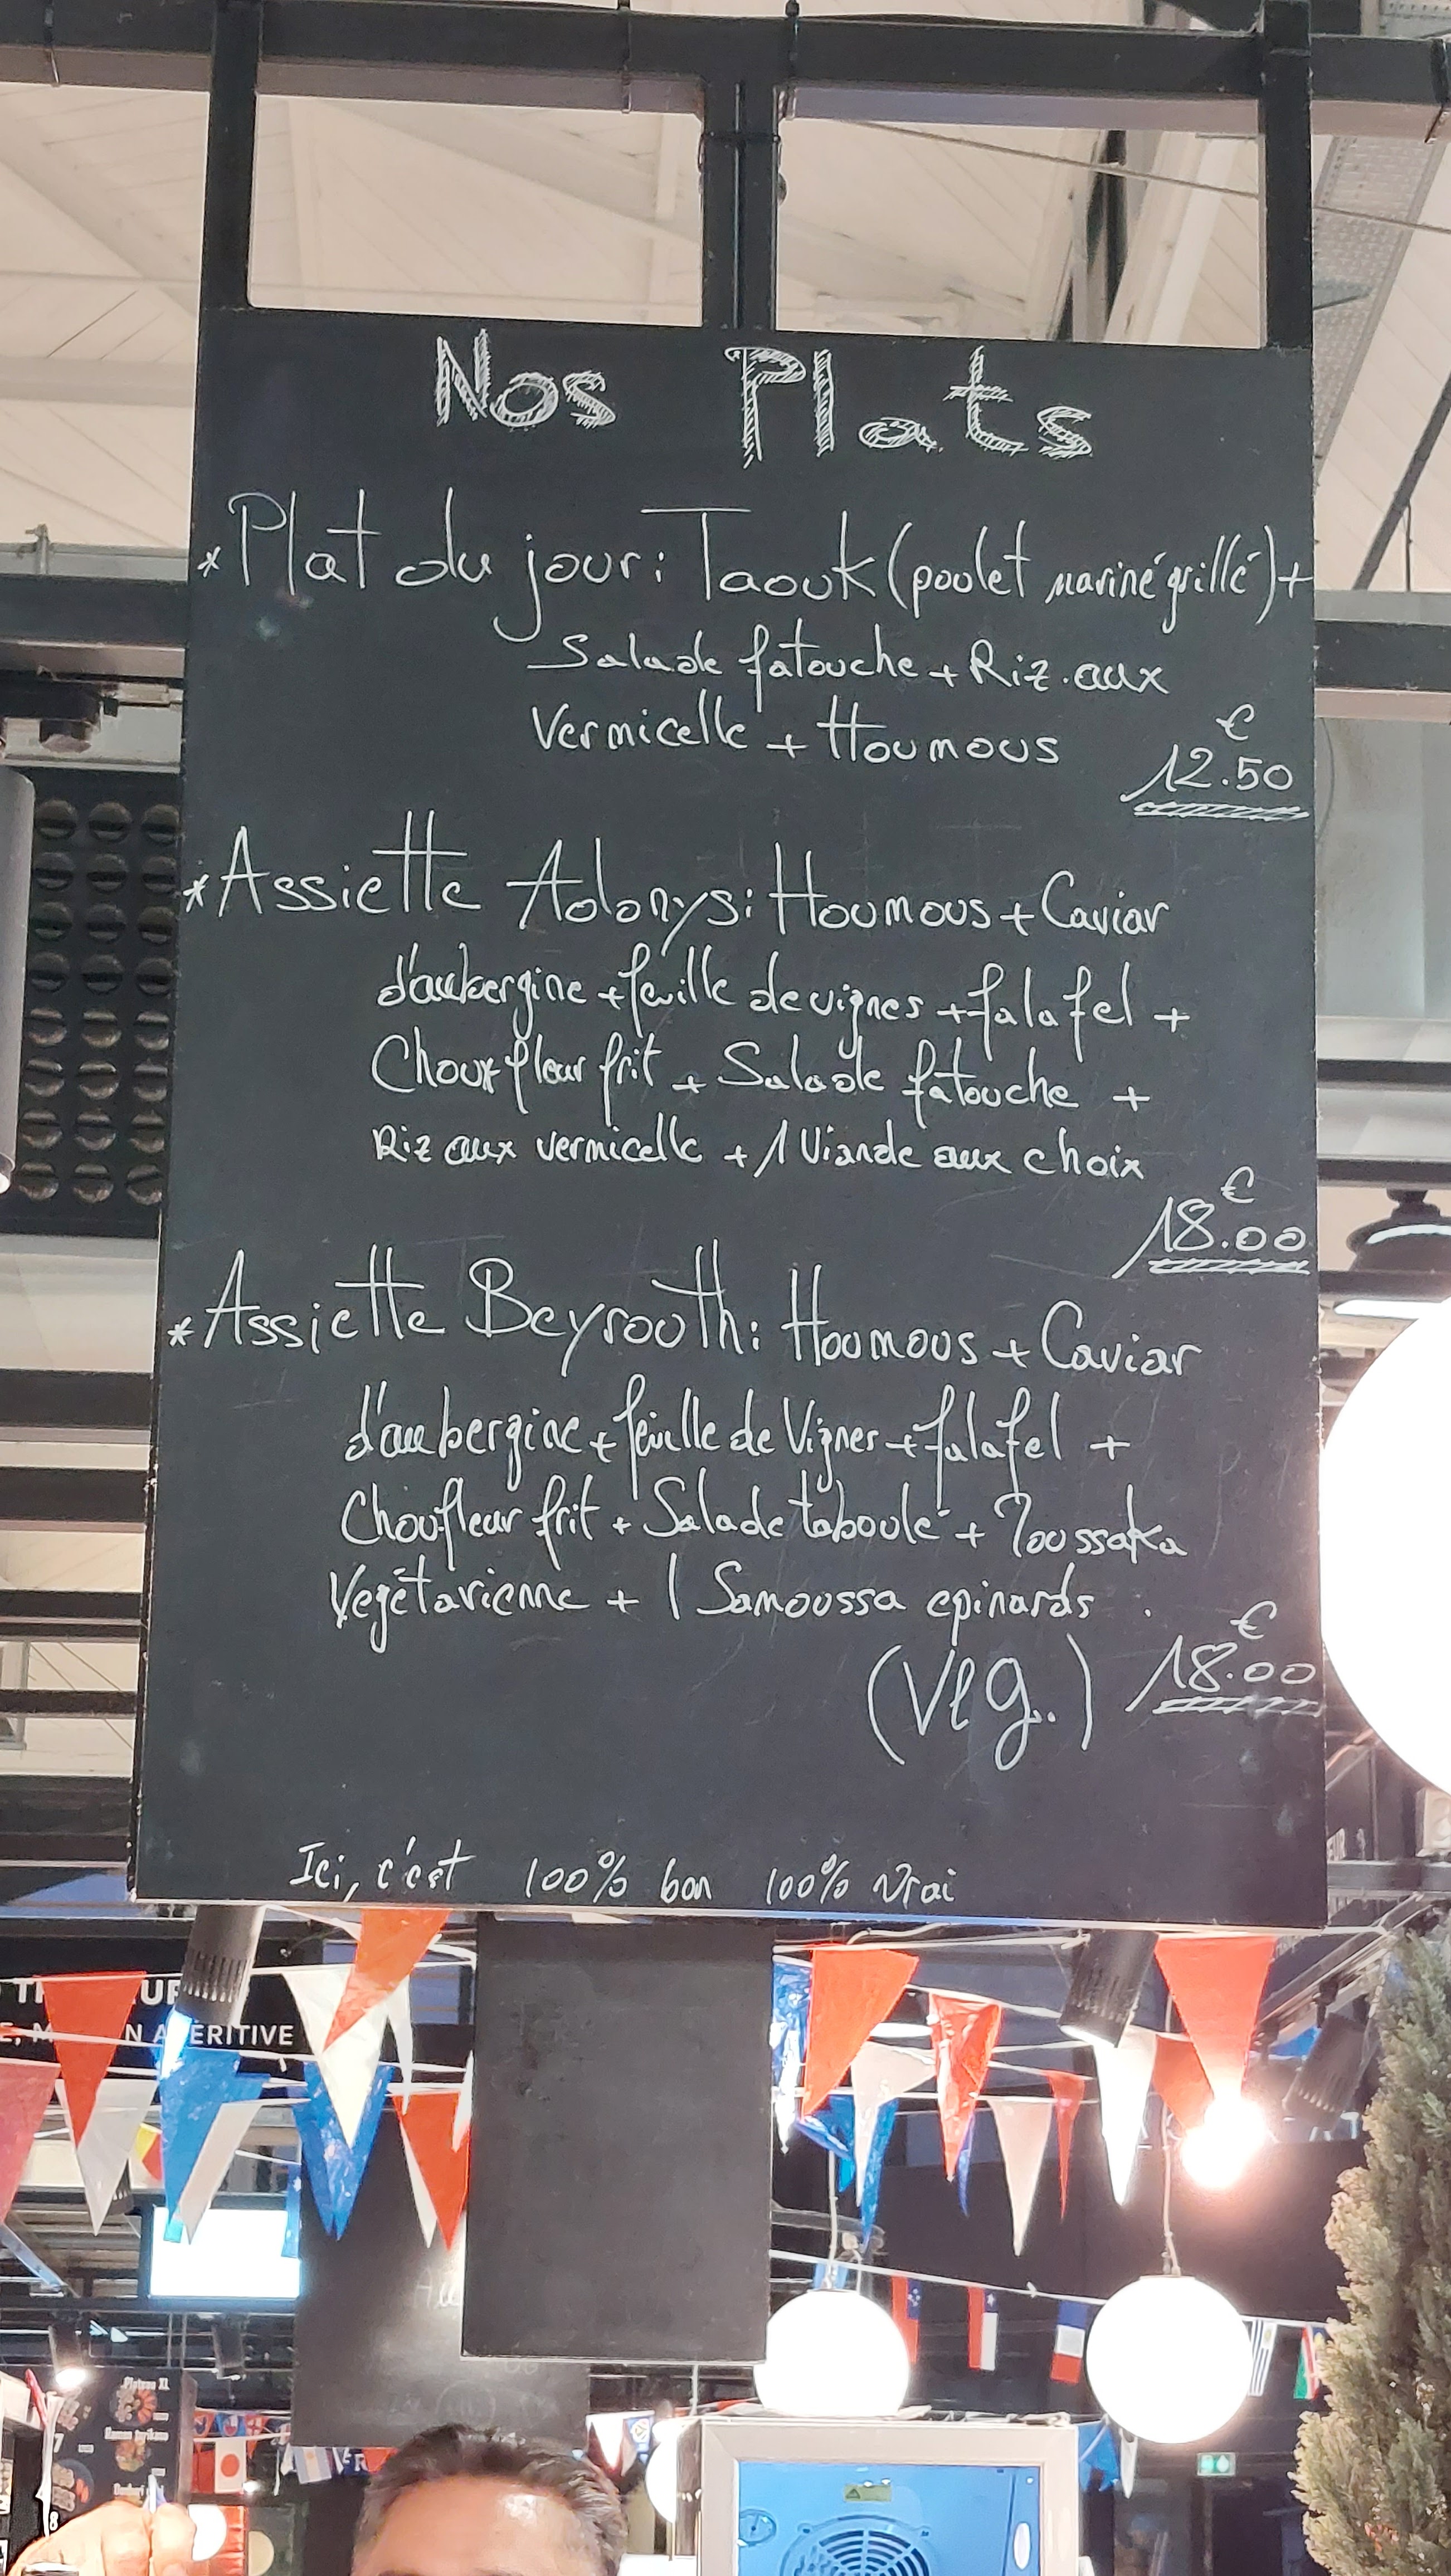 Nos Plats
* Plat du jour: Taouk (poulet mariné grillé) +
Salade fatouche + Riz aux
Vermicelle + Houmous
€
12.50
* Assiette Adonys: Houmous + Caviar
d'aubergine + feuille de vignes + falafel +
Chouxfleur frit + Salade fatouche +
Riz aux vermicelle + 1 Viande aux choix
€
18.00
* Assiette Beyrouth: Houmous + Caviar
d'aubergine + feuille de Vignes + falafel +
Choufleur frit + Salade taboulé + Moussaka
Végétarienne + 1 Samoussa epinards.
€
(Veg.) 18.00
Ici, c'est 100% bon 100% vrai